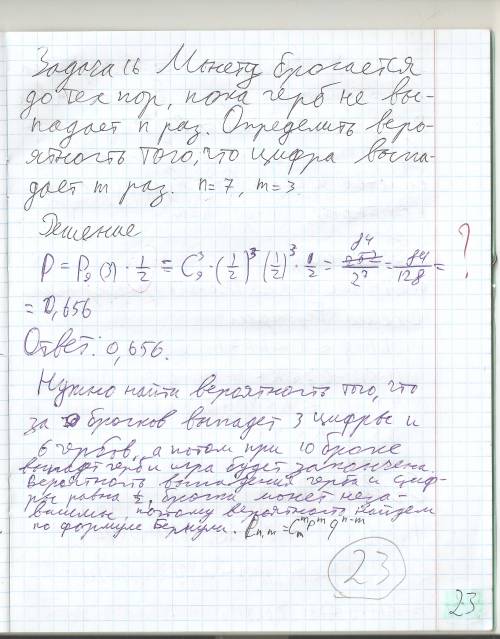 Задача 16 Монету бросается
до тех пор, пока герб не вы-
падает n раз. Определить веро-
ятность того, что цифра выпа-
дает m раз. n=7, m=3
Решение
P = P₉(3) · 1/2 = C₉³ · (1/2)³ (1/2)³ · 1/2 = 84/2⁷ = 84/128 = ?
= 0,656
Ответ: 0,656.
Нужно найти вероятность того, что
за бросков выпадет 3 цифры и
6 гербов, а потом при 10 броске
выпадет герб и игра будет закончена.
Вероятность выпадения герба и циф-
ры равна 1/2, броски может неза-
висимы, поэтому вероятность найдем
по формуле Бернули. Pn,m = Cₘⁿ pᵐ qⁿ⁻ᵐ
23
23